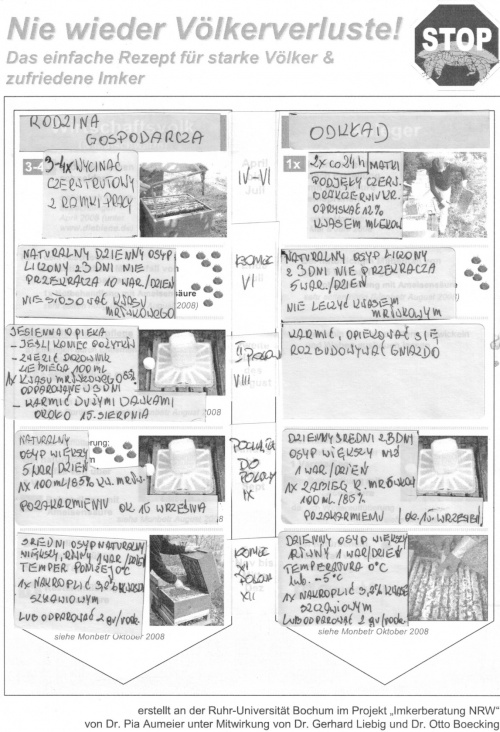 Nie wieder Völkerverluste!
Das einfache Rezept für starke Völker &
zufriedene Imker
STOP
RODZINA
GOSPODARCZA
ODKŁAD
3-4
3-4x WYCINAĆ
CZERW TRUTOWY
2 RAMKI PRACY
April
IV-VI
Juli
1x
2x co 24h MATKI
PODJĘŁY CZERW.
ORAZ CZERWIU KR.
OPRYSKAĆ 12%
KWASEM MLEKOW.
NATURALNY DZIENNY OSYP
LICZONY Z 3 DNI NIE
PRZEKRACZA 10 WAR/DZIEŃ
NIE STOSOWAĆ KWASU
MRÓWKOWEGO
säure
2008)
KONIEC
VI
NATURALNY OSYP LICZONY
Z 3 DNI NIE PRZEKRACZA
5 WAR./DZIEŃ
NIE LECZYĆ KWASEM
MRÓWKOWYM
JESIENNA OPIEKA
- JEŚLI KONIEC POŻYTKÓW
100 ML
1x KWASU MRÓWKOWEGO 85%
ODPAROWANIE 3 DNI
- KARMIĆ DUŻYMI DAWKAMI
OKOŁO 15. SIERPNIA
2008
VIII
KARMIĆ, OPIEKOWAĆ SIĘ,
ROZBUDOWYWAĆ GNIAZDO
NATURALNY
OSYP WIĘKSZY
5 WAR/DZIEŃ
1x 100 ML/85% KW. MRÓW.
PO ZAKARMIENIU OK 10 WRZEŚNIA
DO
IX
DZIENNY ŚREDNI Z 3 DNI
OSYP WIĘKSZY NIŻ
1 WAR/DZIEŃ
1x ZABIEG K. MRÓWKOW
100 ML/85%
PO ZAKARMIENIU OK. 10. WRZESIEŃ
ŚREDNI OSYP NATURALNY
WIĘKSZY, RÓWNY 1 WAR/DZIEŃ
TEMPER PONIŻEJ 0°C
1x NAKROPLIĆ 3,5% KWASEM
SZCZAWIOWYM
LUB ODPAROWAĆ 2 gr/
KONIEC
XI
XII
DZIENNY OSYP WIĘKSZY
RÓWNY 1 WAR/DZIEŃ
TEMPERATURA 0°C
lub. -5°C
1x NAKROPLIĆ 3,5% KWASEM
SZCZAWIOWYM
LUB ODPAROWAĆ 2 gr/
siehe Monbetr Oktober 2008
siehe Monbetr Oktober 2008
erstellt an der Ruhr-Universität Bochum im Projekt „Imkerberatung NRW“
von Dr. Pia Aumeier unter Mitwirkung von Dr. Gerhard Liebig und Dr. Otto Boecking